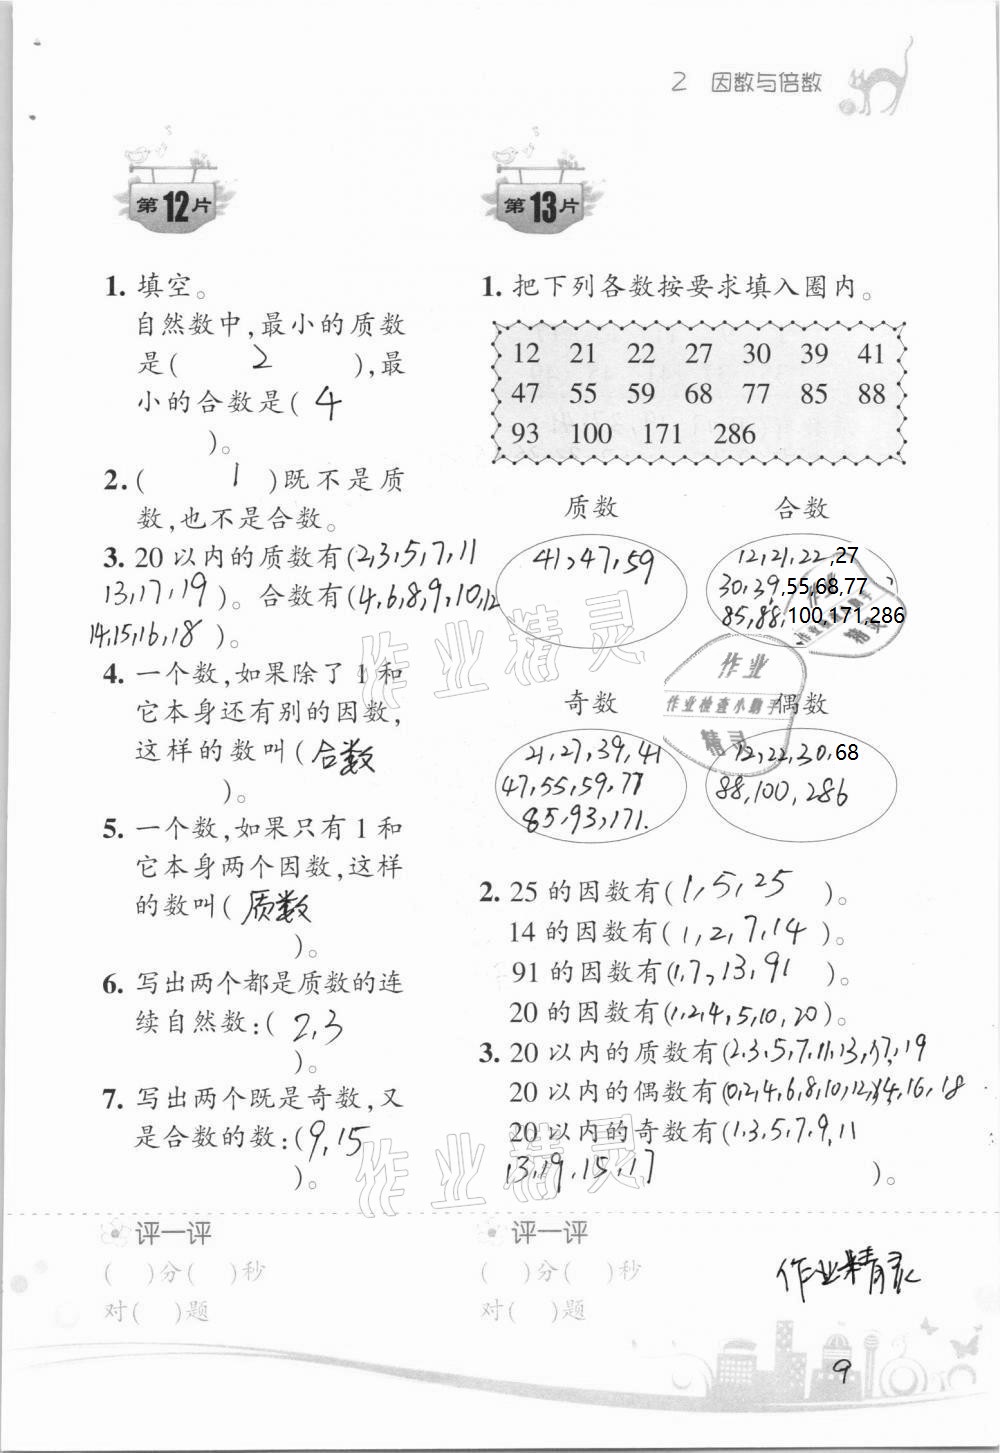 2 因数与倍数
第12片
1. 填空。
自然数中,最小的质数
是( 2 ),最
小的合数是( 4
)。
2. ( 1 )既不是质
数,也不是合数。
3. 20以内的质数有(2,3,5,7,11
13,17,19 )。合数有(4,6,8,9,10,12
14,15,16,18 )。
4. 一个数,如果除了1和
它本身还有别的因数,
这样的数叫( 合数
)。
5. 一个数,如果只有1和
它本身两个因数,这样
的数叫( 质数
)。
6. 写出两个都是质数的连
续自然数:( 2,3
)。
7. 写出两个既是奇数,又
是合数的数:(9,15
)。
评一评
( )分( )秒
对( )题
第13片
1. 把下列各数按要求填入圈内。
12 21 22 27 30 39 41
47 55 59 68 77 85 88
93 100 171 286
质数 合数
41,47,59
12,21,22,27
30,39,55,68,77
85,88,100,171,286
奇数 偶数
21,27,39,41
47,55,59,77
85,93,171.
12,22,30,68
88,100,286
2. 25的因数有(1,5,25 )。
14的因数有(1,2,7,14 )。
91的因数有(1,7,13,91 )。
20的因数有(1,2,4,5,10,20)。
3. 20以内的质数有(2,3,5,7,11,13,17,19
20以内的偶数有(0,2,4,6,8,10,12,14,16,18
20以内的奇数有(1,3,5,7,9,11
13,19,15,17 )。
评一评
( )分( )秒
对( )题
作业精灵
9
作业精灵
作业精灵
作业
作业检查小助手
精灵
作业
作业检查小助手
精灵